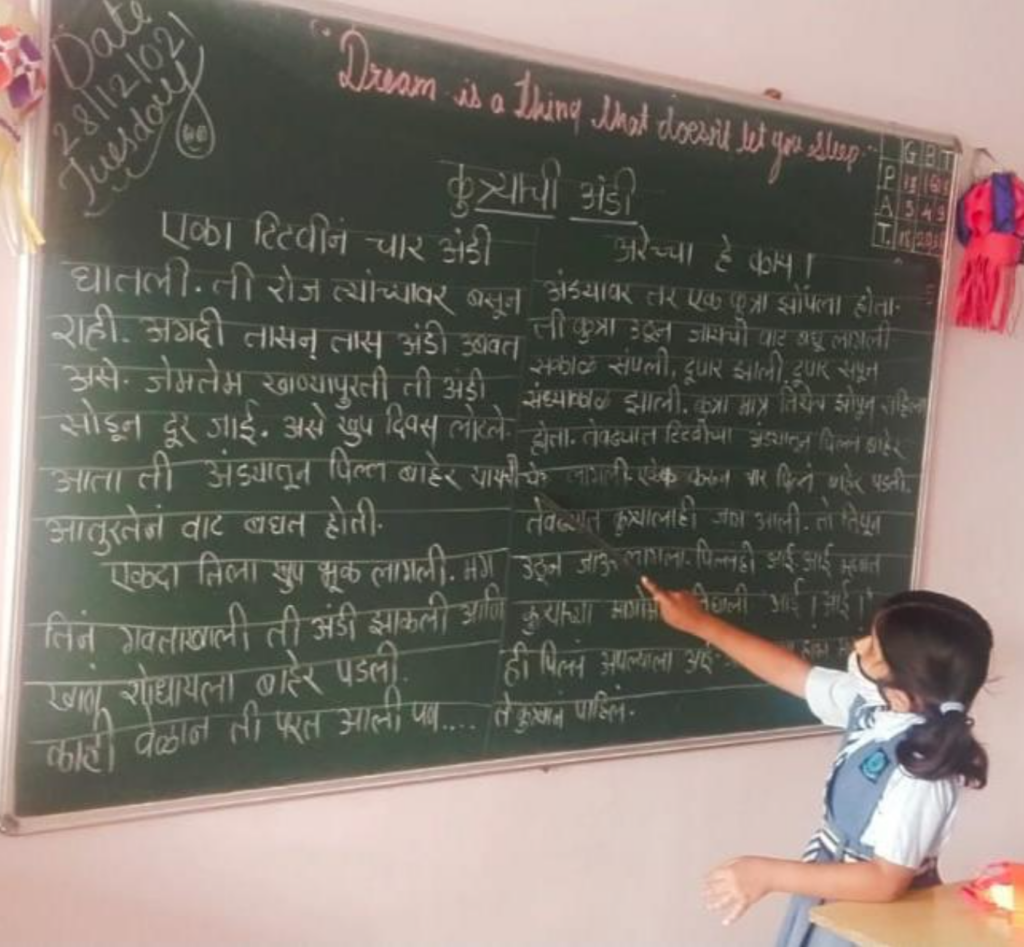 Date
28/12/021
Tuesday
"Dream is a thing that doesn't let you sleep"
G B T
P
A 5 4 9
T.
कुत्र्याची अंडी
एका टिटवीनं चार अंडी
घातली. ती रोज त्यांच्यावर बसून
राही. अगदी तासन् तास अंडी उबवत
असे. जेमतेम खाण्यापुरती ती अंडी
सोडून दूर जाई. असे खुप दिवस लोटले.
आता ती अंड्यातून पिल्लं बाहेर
आतुरतेनं वाट बघत होती.
एकदा तिला खुप भूक लागली. मग
तिनं गवताखाली ती अंडी झाकली आणि
खाणं शोधायला बाहेर पडली.
काही वेळानं ती परत आली पण....
अरेच्चा हे काय।
अंड्यावर तर एक कुत्रा झोपला होता.
ती कुत्रा उठून जायची वाट बघू लागली
सकाळ संपली. दुपार झाली. दुपार संपून
संध्याकाळ झाली. कुत्रा मात्र तिथेच झोपून राहिला
होता. तेवढ्यात टिटवीच्या अंड्यातून पिल्लं बाहेर
लागली. एकेक करून चार पिल्लं बाहेर पडली.
तेवढ्यात कुत्र्यालाही जाग आली. तो तिथून
उठून जाऊ लागला. पिल्लंही आई आई म्हणत
कुत्र्याच्या निघाली आई। आई।
ही पिल्लं आपल्याला आई
ते कुत्र्यानं पाहिलं.